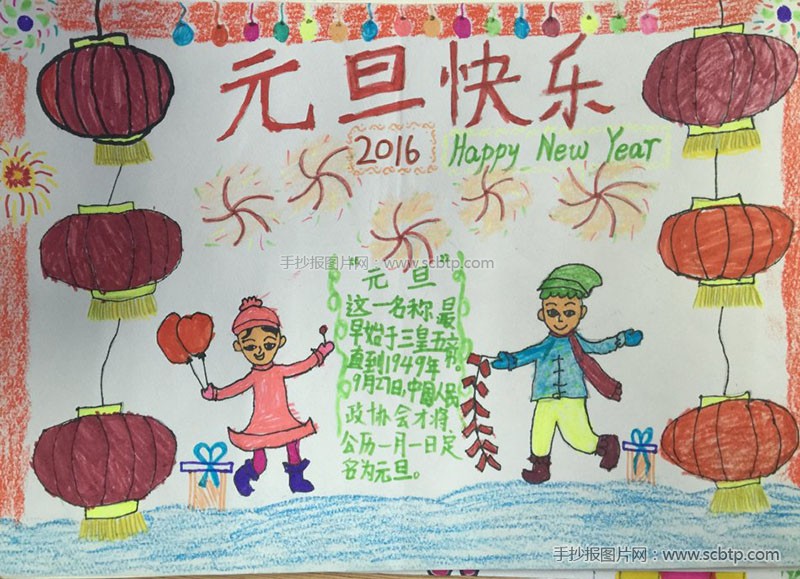 元旦快乐
2016 Happy New Year
手抄报图片网:www.scbtp.com
"元旦"
这一名称,最
早始于三皇五帝,
直到1949年
9月27日,中国人民
政协会才将
公历一月一日定
名为元旦。
手抄报图片网:www.scbtp.com